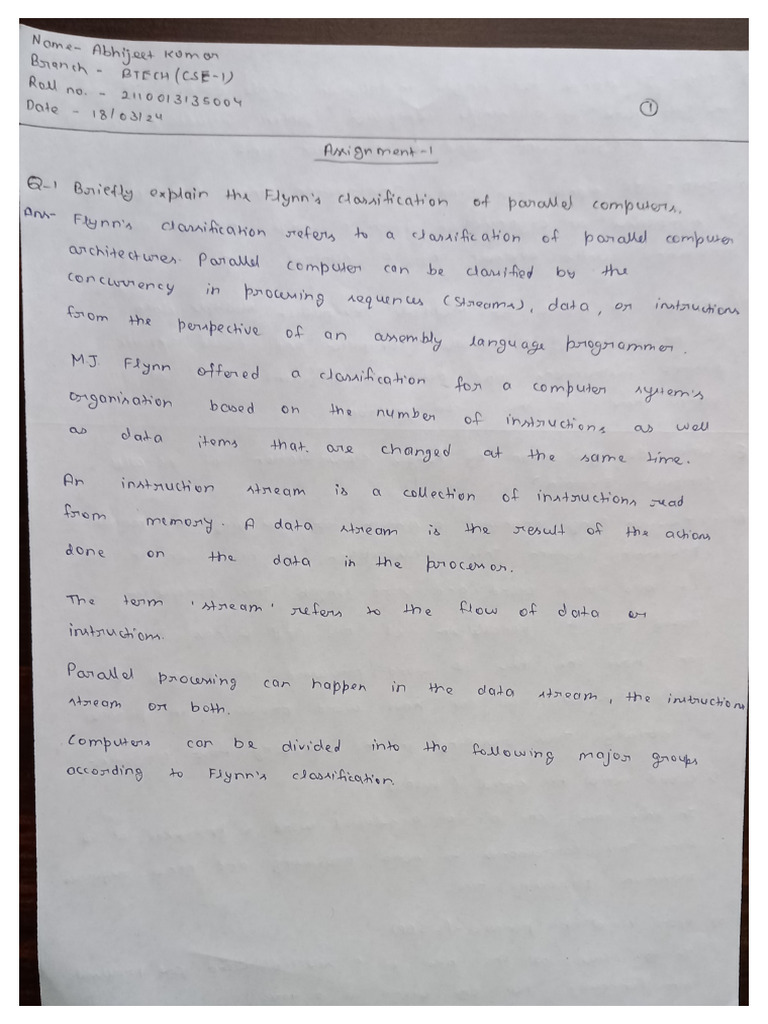 Name- Abhijeet Kumar
Branch - BTECH (CSE-1)
Roll no. - 2110013135004
Date - 18/03/24
1
Assignment-1
Q-1 Briefly explain the Flynn's classification of parallel computers.
Ans- Flynn's classification refers to a classification of parallel computer
architectures. Parallel computer can be classified by the
concurrency in processing sequences (streams), data, or instructions
from the perspective of an assembly language programmer.
MJ Flynn offered a classification for a computer system's
organisation based on the number of instructions as well
as data items that are changed at the same time.
An instruction stream is a collection of instructions read
from memory. A data stream is the result of the actions
done on the data in the processor.
The term 'stream' refers to the flow of data or
instructions.
Parallel processing can happen in the data stream, the instruction
stream or both.
Computers can be divided into the following major groups
according to Flynn's classification.